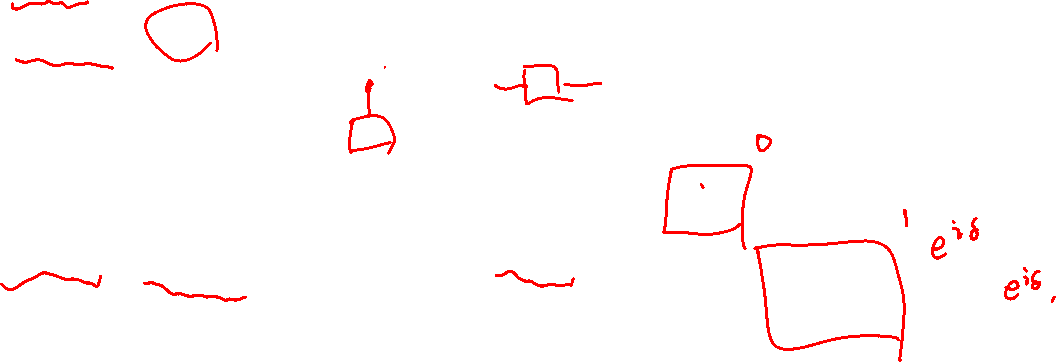 0
1
e^{iδ}
e^{iδ}.